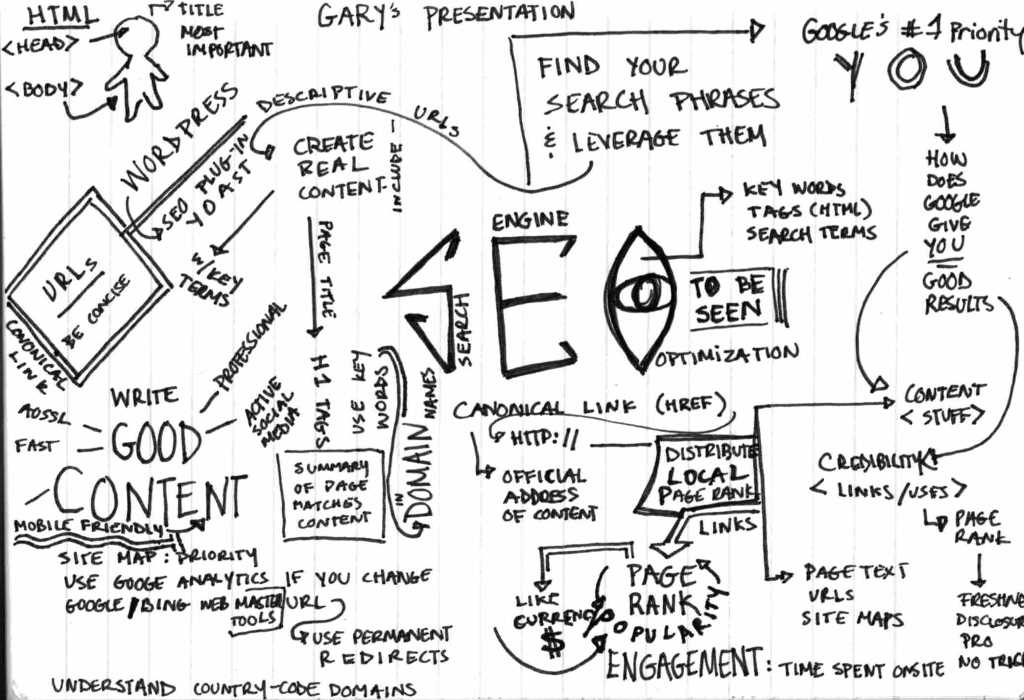 HTML
<HEAD>
<BODY>
TITLE
MOST
IMPORTANT
GARY's PRESENTATION
FIND YOUR
SEARCH PHRASES
& LEVERAGE THEM
GOOGLE's #1 Priority
YOU
HOW
DOES
GOOGLE
GIVE
YOU
GOOD
RESULTS
WORDPRESS
SEO PLUG-IN
YOAST
DESCRIPTIVE URLS
CREATE
REAL
CONTENT
INCLUDE
W/KEY
TERMS
PAGE TITLE
H1 TAGS
URLs
BE CONCISE
CONONICAL
LINK
SEARCH
ENGINE
SEO
OPTIMIZATION
TO BE
SEEN
KEY WORDS
TAGS (HTML)
SEARCH TERMS
WRITE
GOOD
CONTENT
PROFESSIONAL
ACTIVE
SOCIAL
MEDIA
FAST
MOBILE FRIENDLY
USE KEY
WORDS
IN
DOMAIN NAMES
SUMMARY
OF PAGE
MATCHES
CONTENT
CANONICAL LINK (HREF)
HTTP://
OFFICIAL
ADDRESS
OF CONTENT
DISTRIBUTE
LOCAL
PAGE RANK
LINKS
CONTENT
<STUFF>
CREDIBILITY
<LINKS/USES>
PAGE
RANK
FRESHNE
DISCLOSUR
PRO
NO TRICK
PAGE TEXT
URLS
SITE MAPS
PAGE
RANK
POPULARITY
LIKE
CURRENCY
$
%
ENGAGEMENT: TIME SPENT ONSITE
SITE MAP: PRIORITY
USE GOOGE ANALYTICS
GOOGLE/BING WEB MASTER
TOOLS
IF YOU CHANGE
URL
USE PERMANENT
REDIRECTS
UNDERSTAND COUNTRY-CODE DOMAINS